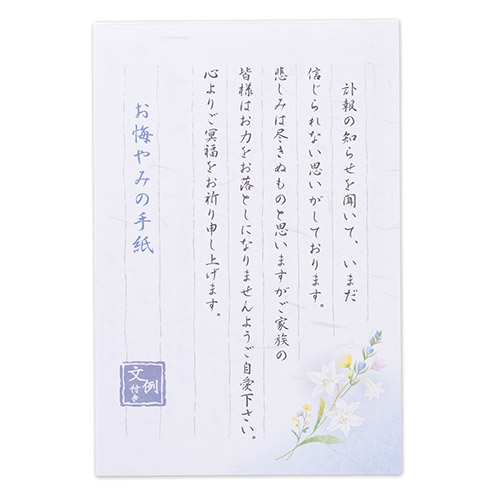 訃報の知らせを聞いて、いまだ
信じられない思いがしております。
悲しみは尽きぬものと思いますがご家族の
皆様はお力をお落としになりませんようご自愛下さい。
心よりご冥福をお祈り申し上げます。
お悔やみの手紙
文例
付き